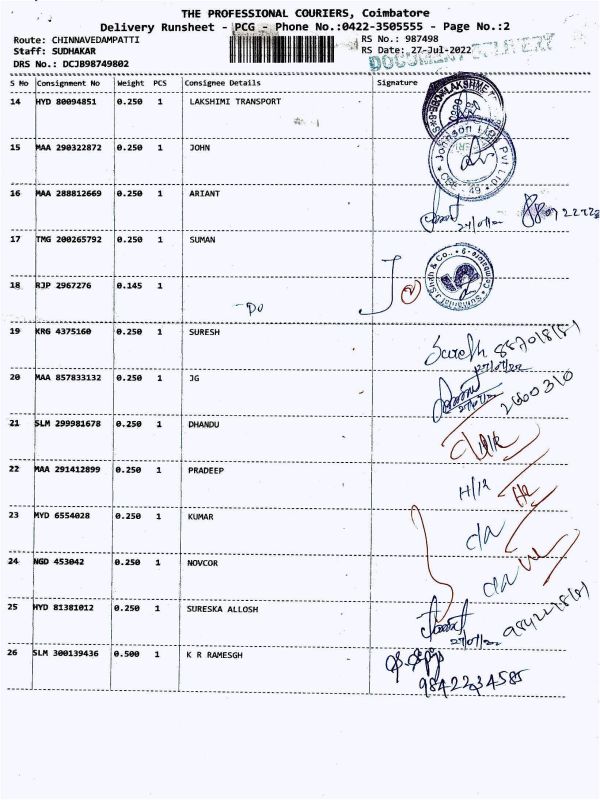 THE PROFESSIONAL COURIERS, Coimbatore
Delivery Runsheet - PCG - Phone No.:0422-3505555 - Page No.:2
Route: CHINNAVEDAMPATTI RS No.: 987498
Staff: SUDHAKAR RS Date: 27-Jul-2022
DRS No.: DCJB98749802
S No Consignment No Weight PCS Consignee Details Signature
14 HYD 80094851 0.250 1 LAKSHIMI TRANSPORT
15 MAA 290322872 0.250 1 JOHN
Johnson Pvt Ltd
CBE - 49
16 MAA 288812669 0.250 1 ARIANT
17 TMG 200265792 0.250 1 SUMAN
18 RJP 2967276 0.145 1
- DO
19 KRG 4375160 0.250 1 SURESH
Suresh
27/07/22
20 MAA 857833132 0.250 1 JG
2600310
21 SLM 299981678 0.250 1 DHANDU
22 MAA 291412899 0.250 1 PRADEEP
23 MYD 6554028 0.250 1 KUMAR
24 NGD 453042 0.250 1 NOVCOR
25 HYD 81381012 0.250 1 SURESKA ALLOSH
26 SLM 300139436 0.500 1 K R RAMESGH
9842234585